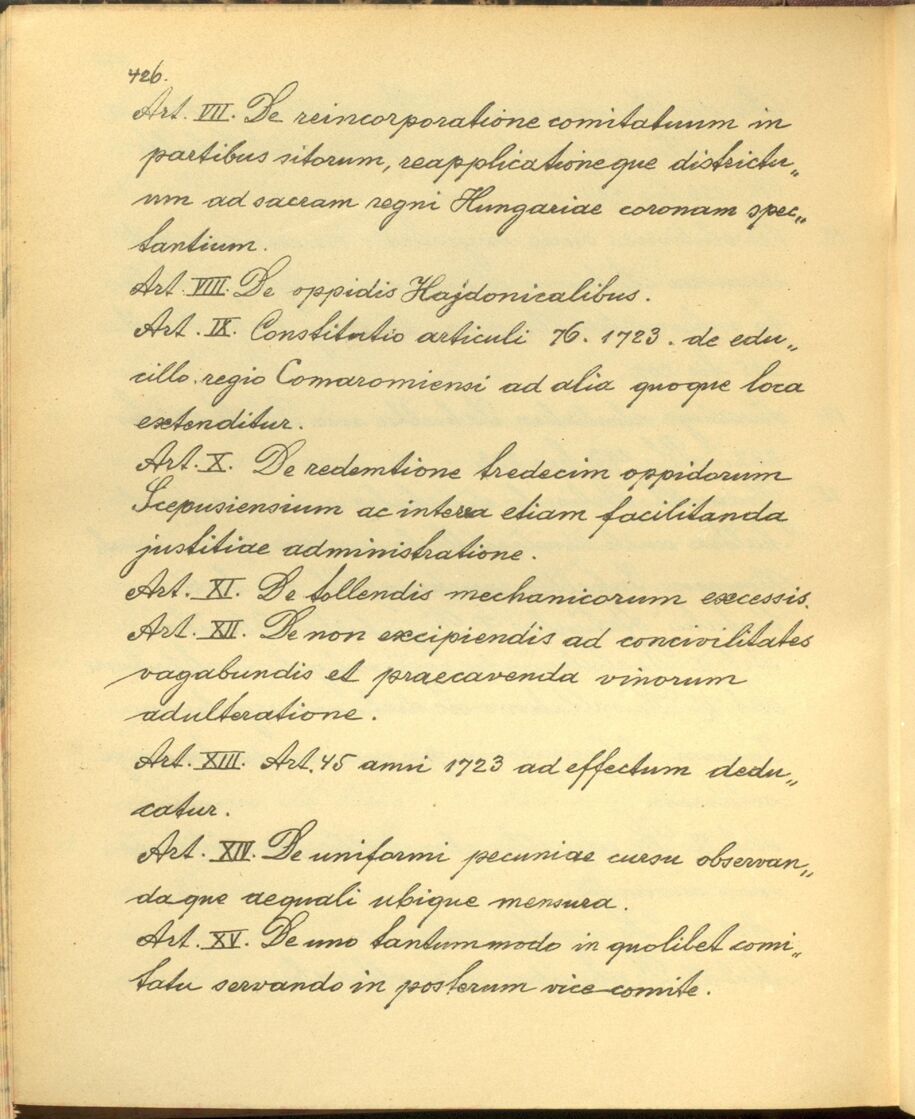 426.
Art. VII. De reincorporatione comitatuum in
partibus sitorum, reapplicationeque districtu„
um ad sacram regni Hungariae coronam spec„
tantium.
Art. VIII. De oppidis Hajdonicalibus.
Art. IX. Constitutio articuli 76. 1723. de edu„
cillo regio Comaromiensi ad alia quoque loca
extenditur.
Art. X. De redemtione tredecim oppidorum
Scepusiensium ac interea etiam facilitanda
justitiae administratione.
Art. XI. De tollendis mechanicorum excessis.
Art. XII. De non excipiendis ad concivilitates
vagabundis et praecavenda vinorum
adulteratione.
Art. XIII. Art. 45 anni 1723 ad effectum dedu„
catur.
Art. XIV. De uniformi pecuniae cursu observan„
daque aequali ubique mensura.
Art. XV. De uno tantummodo in quolibet comi„
tatu servando in posterum vice-comite.